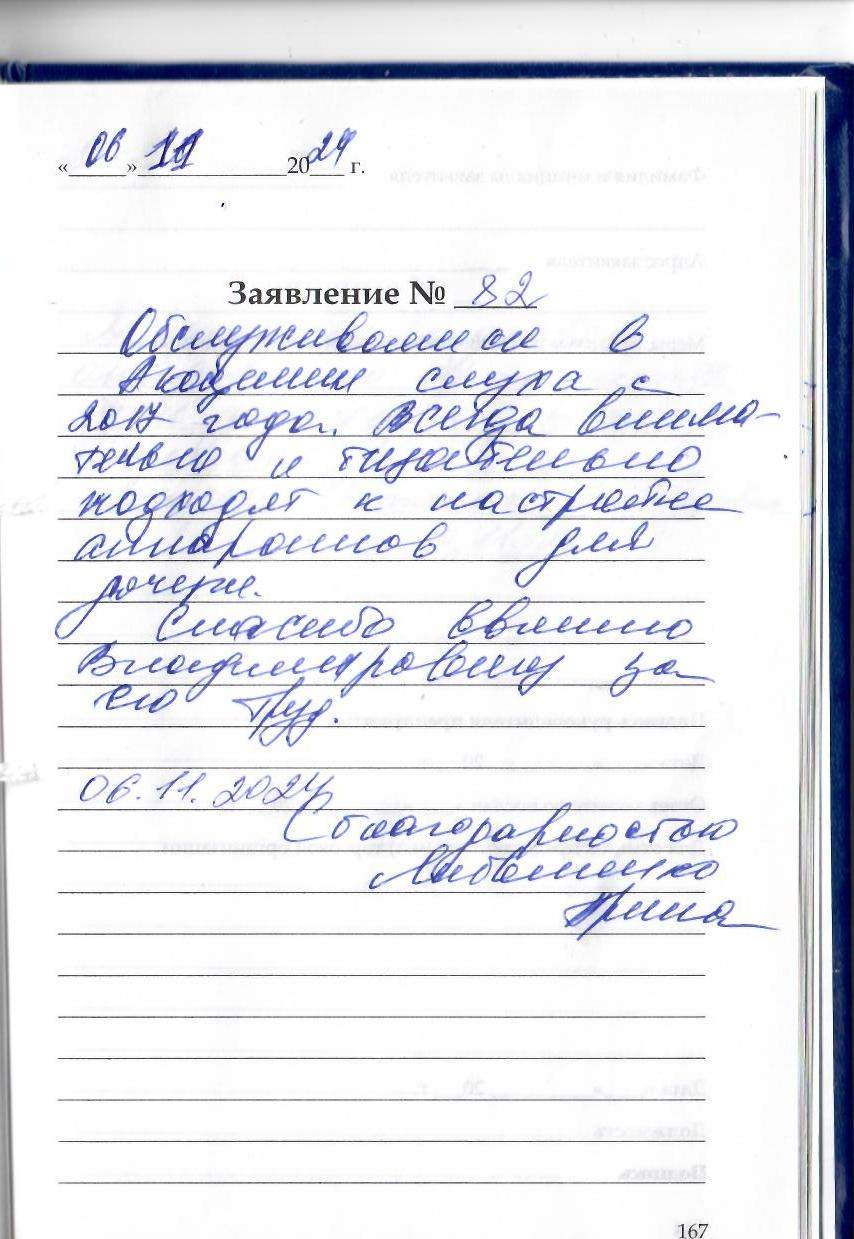 «06» 11 2024 г.
Заявление № 82
Обслуживаемся в
Академии слуха с
2017 года. Всегда внима-
тельно и тщательно
подходят к настройке
аппаратов для
дочери.
Спасибо
Владимировичу за
его труд.
06.11.2024
С благодарностью
Ирина
167